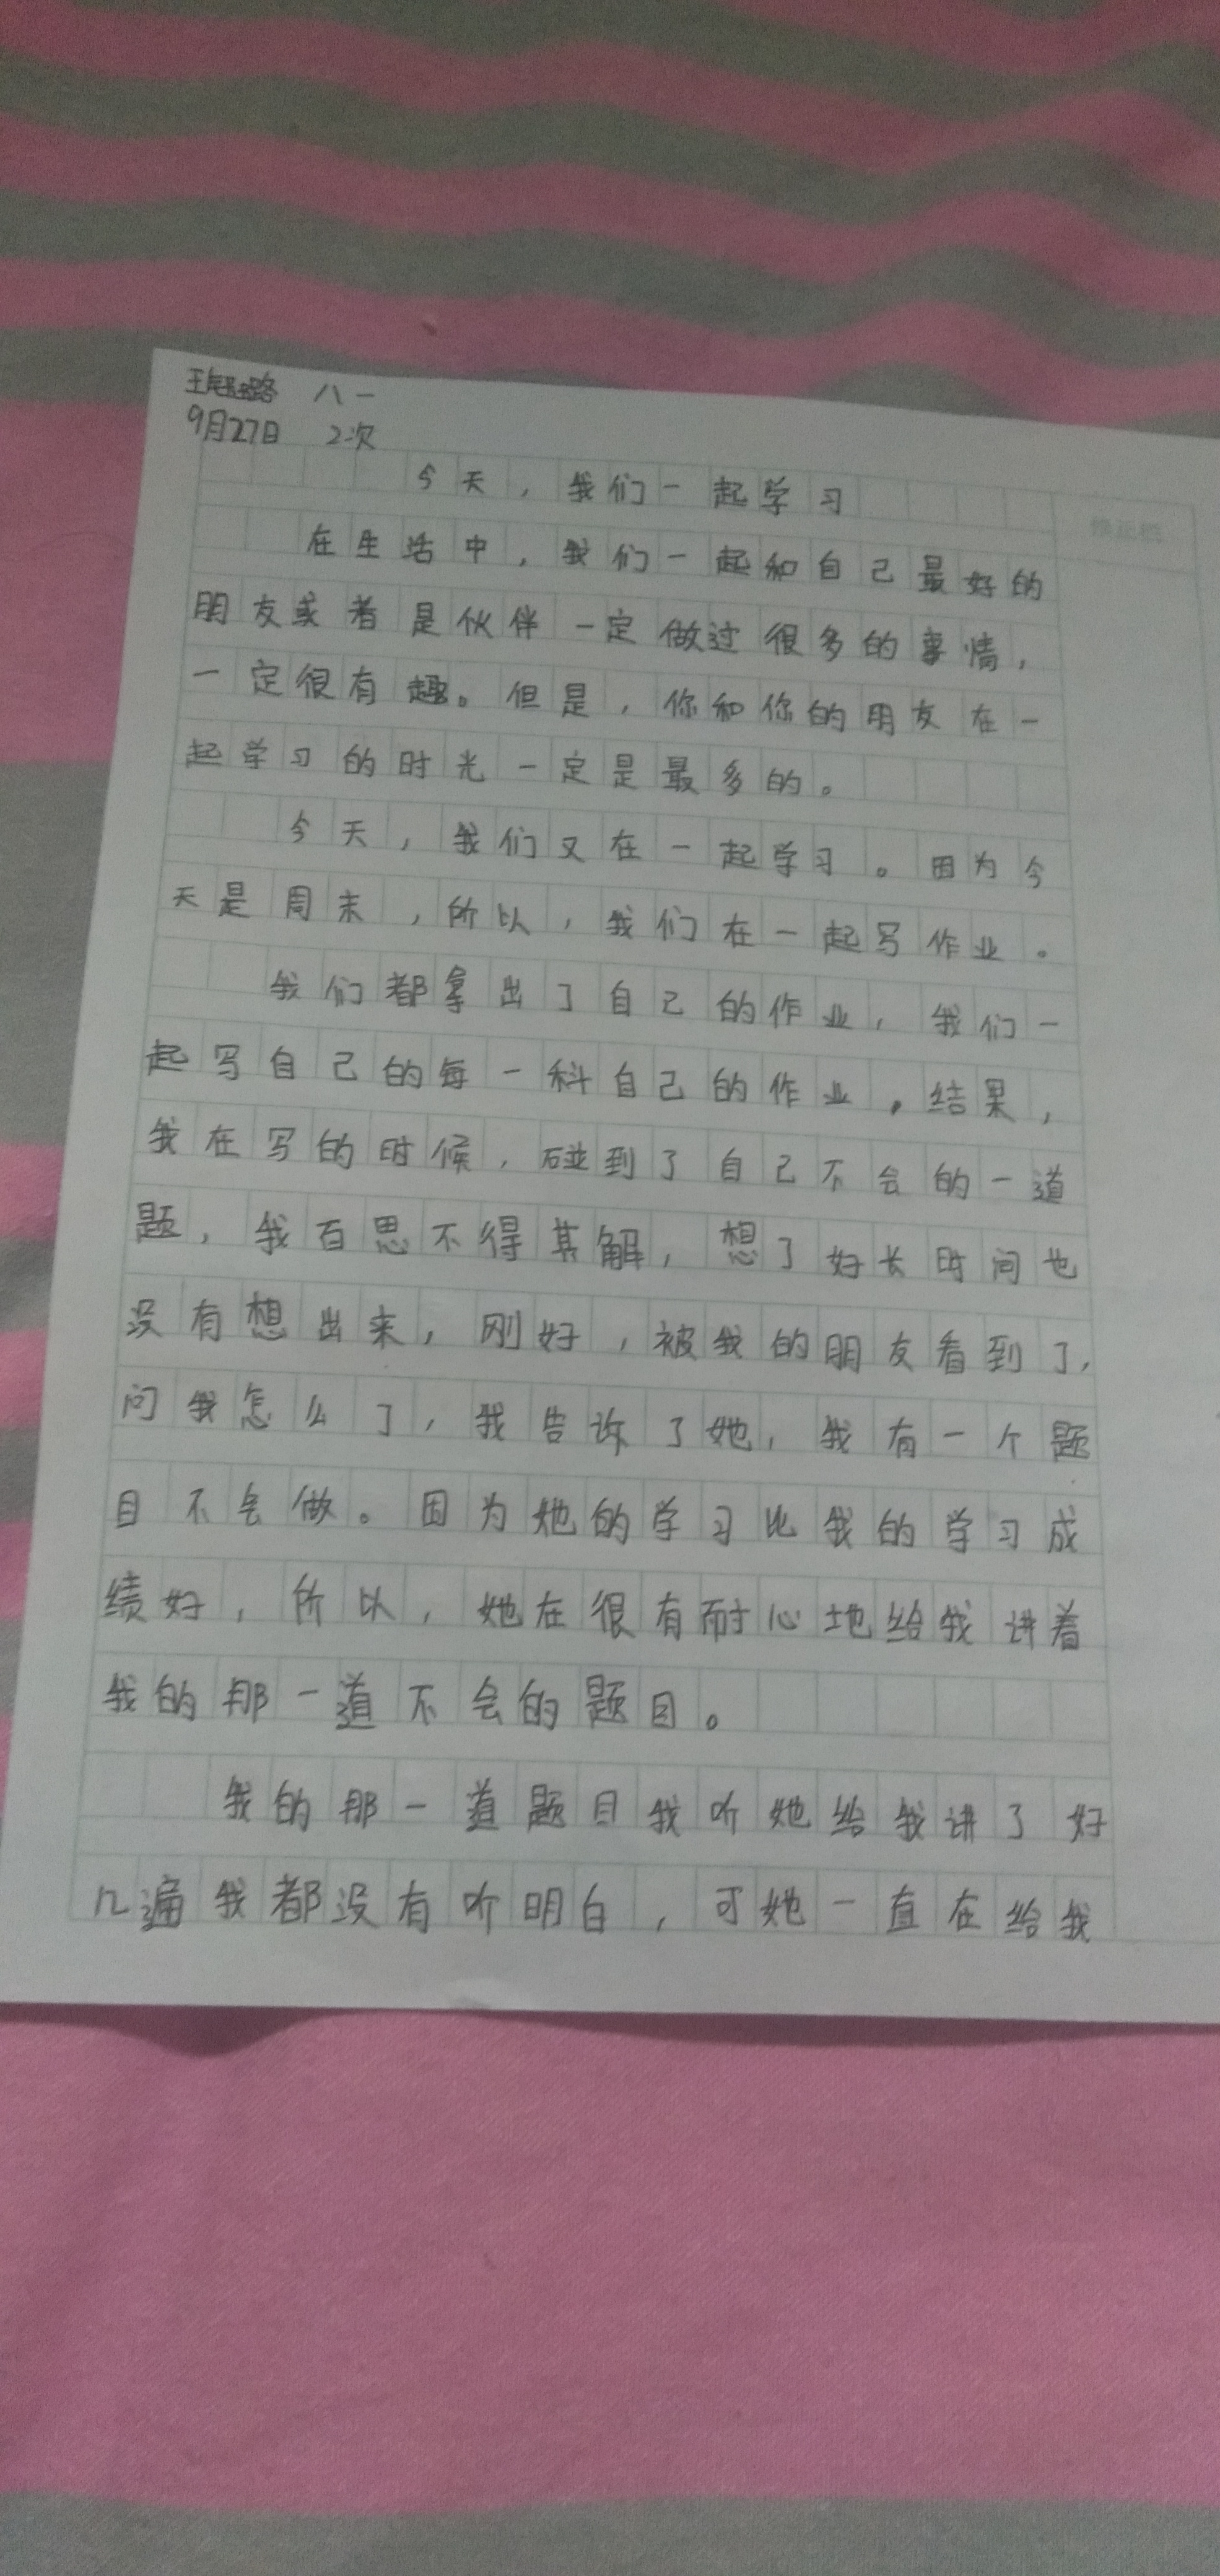 王钰璐 八一
9月27日 2次
今天，我们一起学习
在生活中，我们一起和自己最好的
朋友或者是伙伴一定做过很多的事情，
一定很有趣。但是，你和你的朋友在一
起学习的时光一定是最多的。
今天，我们又在一起学习。因为今
天是周末，所以，我们在一起写作业。
我们都拿出了自己的作业，我们一
起写自己的每一科自己的作业。结果，
我在写的时候，碰到了自己不会的一道
题，我百思不得其解，想了好长时间也
没有想出来，刚好，被我的朋友看到了，
问我怎么了，我告诉了她，我有一个题
目不会做。因为她的学习比我的学习成
绩好，所以，她在很有耐心地给我讲着
我的那一道不会的题目。
我的那一道题目我听她给我讲了好
几遍我都没有听明白，可她一直在给我